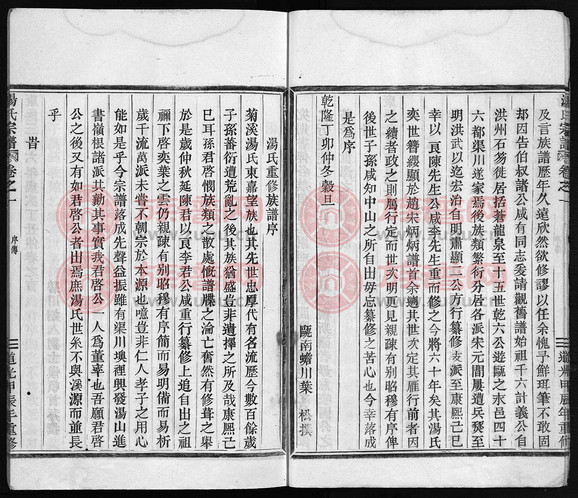 湯氏宗譜 卷之一
及言族譜歷年久遠欣然欲修謬以任余愧予鮮珥筆不敢固
却因告伯叔諸公咸有同志爰請觀舊譜始祖千六計義公自
洪州石磜徙居括蒼龍泉至十五世乾六公遊歷之永邑四十
六都渠川遂家焉後族類繁衍分居各派宋元間屢遭兵燹至
明洪武以迄宏治自明肅顯二公方行纂修族垂至康熙己巳
幸以一良陳先生公咸李先生重而修之今將六十年矣其湯氏
奕世簪纓顯於趙宋炳炳譜首余適其世次定其雁行前者因
之續者政之則屬行定而世次明更見親疎有別昭穆有序俾
後世子孫咸知中山之所自出毋忘纂修之苦心也今幸落成
是為序
乾隆丁卯仲冬穀旦
隴南蟾川葉 松撰
道光甲辰年重修
湯氏宗譜 卷之一 序傳
湯氏重修族譜序
菊溪湯氏東嘉望族也其先世忠厚代有名流歷今數百餘歲
子孫蕃衍遭荒亂之後其族猶盛豈非遺擇之所及哉康熙己
巳耳孫君啓憫族類之散處慨譜牒之淪亡奮然有修葺之舉
於是歲仲秋延陳君以一良李君公咸重行纂修上追自出之祖
禰下啓奕葉之雲仍親疎有别昭穆有序簡而易明備而易析
歲千流萬派未嘗不朝宗於本源也噫豈非仁人孝子之用心
能如是乎今宗譜落成先聲益振雖有渠川墺裡興發湯山進
書嶺根諸派共勷其事實我君啓公一人為董率也吾願君啓
公之後又有如君啓公者出焉庶湯氏世系不與溪源而並長
乎
旹
道光甲辰年重修